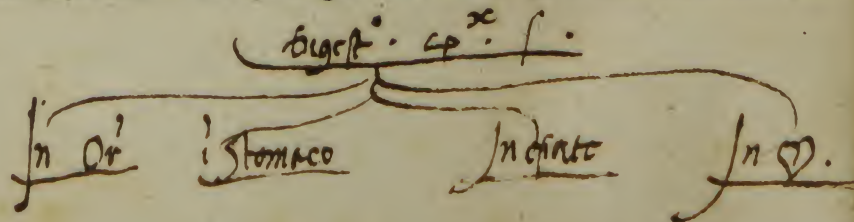 digest°. cpˣ. ſ.
In Or' i' Stomaco In epate In M.